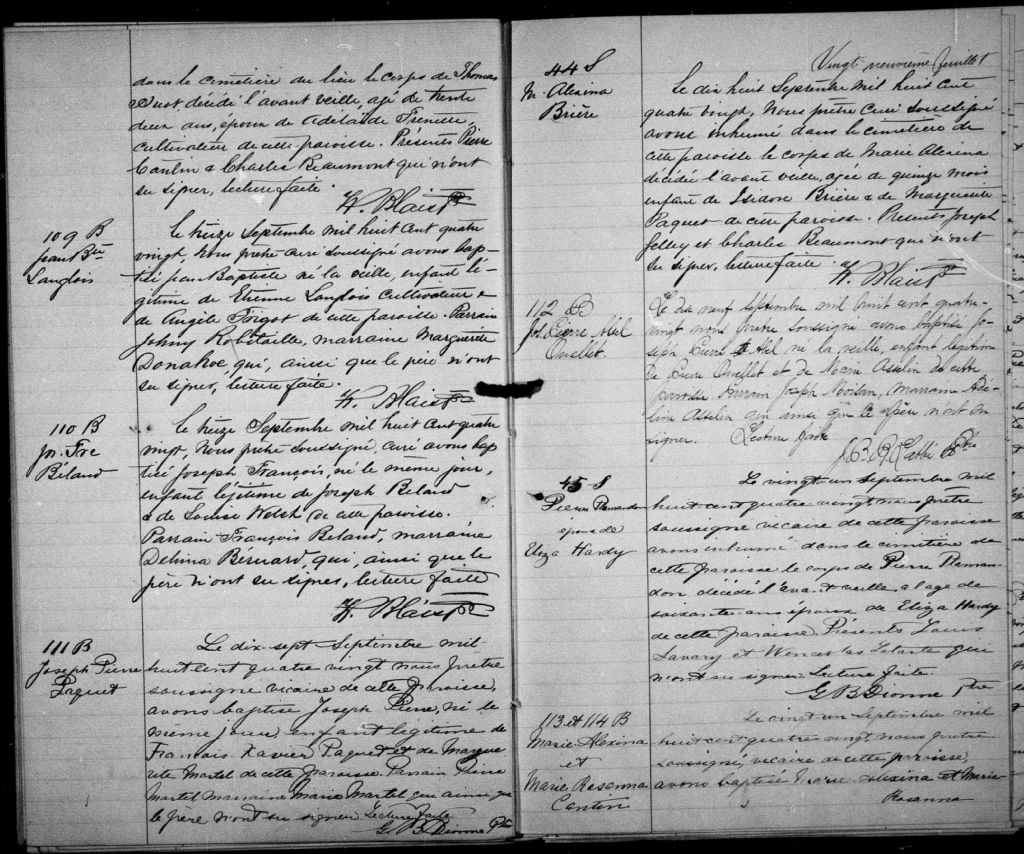 dans le cimetière du lieu le corps de Thomas
décédé l'avant veille, agé de trente
deux ans, époux de Adelaïde Freniere,
cultivateur de cette paroisse. Présents Pierre
& Charles Beaumont qui n'ont
su signer, lecture faite.
F. Blais Ptre
109 B
Jean Bte
Langlois
Le treize Septembre mil huit cent quatre
vingt, Nous prêtre curé soussigné avons bap-
tisé Jean Baptiste né la veille, enfant lé-
gitime de Etienne Langlois cultivateur &
de Angèle de cette paroisse. Parrain
Johny Robitaille, marraine Marguerite
Donahoe qui, ainsi que le père n'ont
su signer, lecture faite.
F. Blais Ptre
110 B
Jos. Fre
Béland
Le treize Septembre mil huit cent quatre
vingt, Nous prêtre soussigné, curé avons bap
tisé Joseph François, né le même jour,
enfant légitime de Joseph Beland
& de Louise Welsh de cette paroisse.
Parrain François Beland, marraine
Delvina Bernard, qui, ainsi que le
père n'ont su signer, lecture faite
F. Blais Ptre
111 B
Joseph Pierre
Paquet
Le dix-sept Septembre mil
huit cent quatre vingt nous pretre
soussigné vicaire de cette paroisse,
avons baptisé Joseph Pierre, né le
même jour enfant légitime de
François Xavier Paquet et de Margue
rite Martel de cette paroisse Parrain Pierre
Martel Marraine Marie Martel qui ainsi que
le père n'ont su signer Lecture faite
G B Dionne Ptre
Vingt neuvième feuillet
44 S
M. Alexina
Brière
Le dix huit Septembre mil huit cent
quatre vingt, Nous prêtre curé soussigné
avons inhumé dans le cimetière de
cette paroisse le corps de Marie Alexina
décédée l'avant veille, agée de quinze mois
enfant de Isidore Brière & de Marguerite
Paquet de cette paroisse. Présents Joseph
et Charles Beaumont qui n'ont
su signer, lecture faite.
F. Blais Ptre
112 B
Jos. Pierre Abel
Ouellet.
Le dix neuf septembre mil huit cent quatre-
vingt nous prêtre soussigné avons baptisé Jo-
seph Pierre Abel né la veille, enfant légitime
de Pierre Ouellet et de Asselin de cette
paroisse Parrain Joseph marraine Adé-
line Asselin qui ainsi que le père n'ont su
signer. Lecture faite
Ptre
45 S
Pierre Plamondon
époux de
Eliza Hardy
Le vingt un septembre mil
huit cent quatre vingt nous prêtre
soussigné vicaire de cette paroisse
avons inhumé dans le cimetière de
cette paroisse le corps de Pierre Plamon-
don décédé l'avant veille a l'age de
soixante ans époux de Eliza Hardy
de cette paroisse Présents Louis
Savary et Wenceslas qui
n'ont su signer Lecture faite.
G B Dionne Ptre
113 et 114 B
Marie Alexina
et
Marie Rosanna
Cantin
Le vingt un Septembre mil
huit cent quatre vingt nous pretre
soussigné, vicaire de cette paroisse,
avons baptisé Marie Alexina et Marie
Rosanna